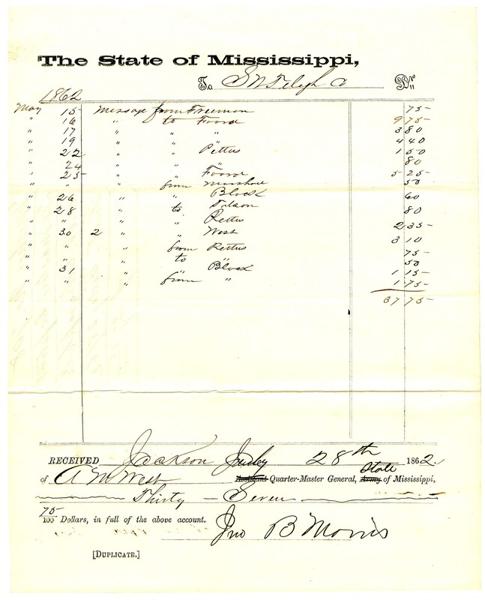 The State of Mississippi,
To S W Telegh Co Dr.
1862
May 15 Message from Freeman 75
" 16 " to Foord 9 75
" 17 " " " 3 80
" 19 " " " 4 40
" 22 " " Pettus 1 50
" 24 " " " 80
" 25 " " Foord 5 25
" " " from Marshall 50
" 26 " " Block 60
" 28 " to Tolson 80
" " " " Pettus 2 35
" 30 2 " " West 3 10
" " " from Pettus 75
" " " to Block 50
" 31 " " " 1 15
" " " from " 1 75
37 75
RECEIVED Jackson July 28th 1862.
of A M West Quarter-Master General, State Army of Mississippi,
Thirty Seven
75
100 Dollars, in full of the above account.
Jno B Morris
[DUPLICATE.]